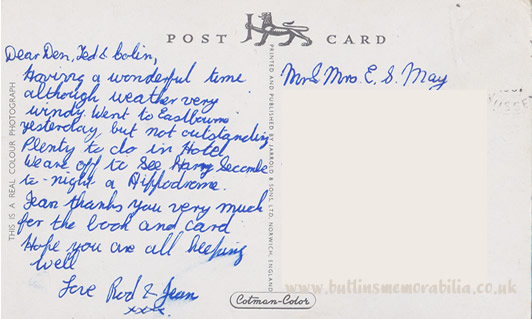 POST CARD
Dear Den, Ted & Colin,
Having a wonderful time
although weather very
windy. Went to Eastbourne
yesterday, but not outstanding
Plenty to do in Hotel
We are off to see Harry Secombe
to-night a Hippodrome.
Jean thanks you very much
for the book and card
Hope you are all keeping
well
Love Rod & Jean
xxxx
Mr & Mrs. E. S. May
THIS IS A REAL COLOUR PHOTOGRAPH
PRINTED AND PUBLISHED BY JARROLD & SONS LTD, NORWICH, ENGLAND
Cotman-Color
www.butlinsmemorabilia.co.uk